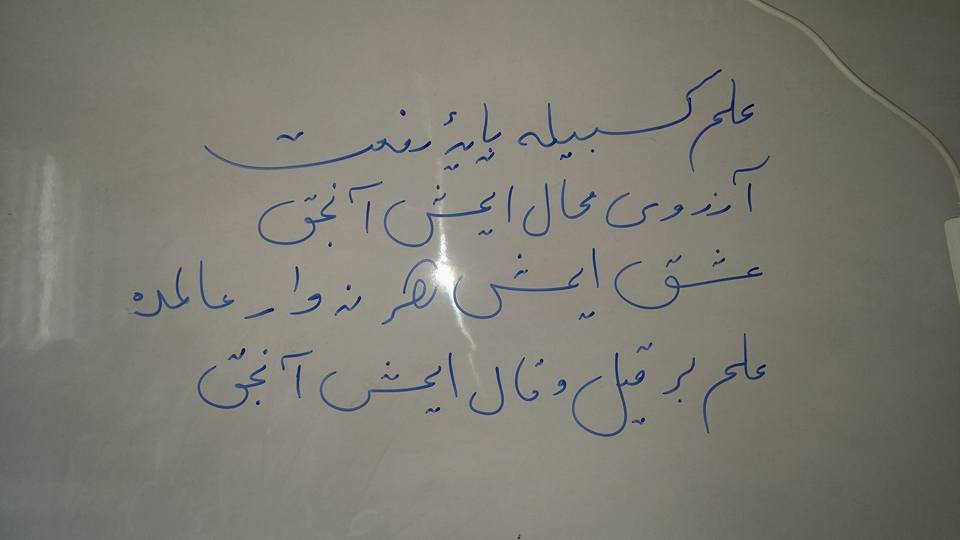 علم كسبيله پایۀ رفعت
آرزوی محال ایمش آنجق
عشق ایمش هر نه وار عالمده
علم بر قیل و قال ایمش آنجق